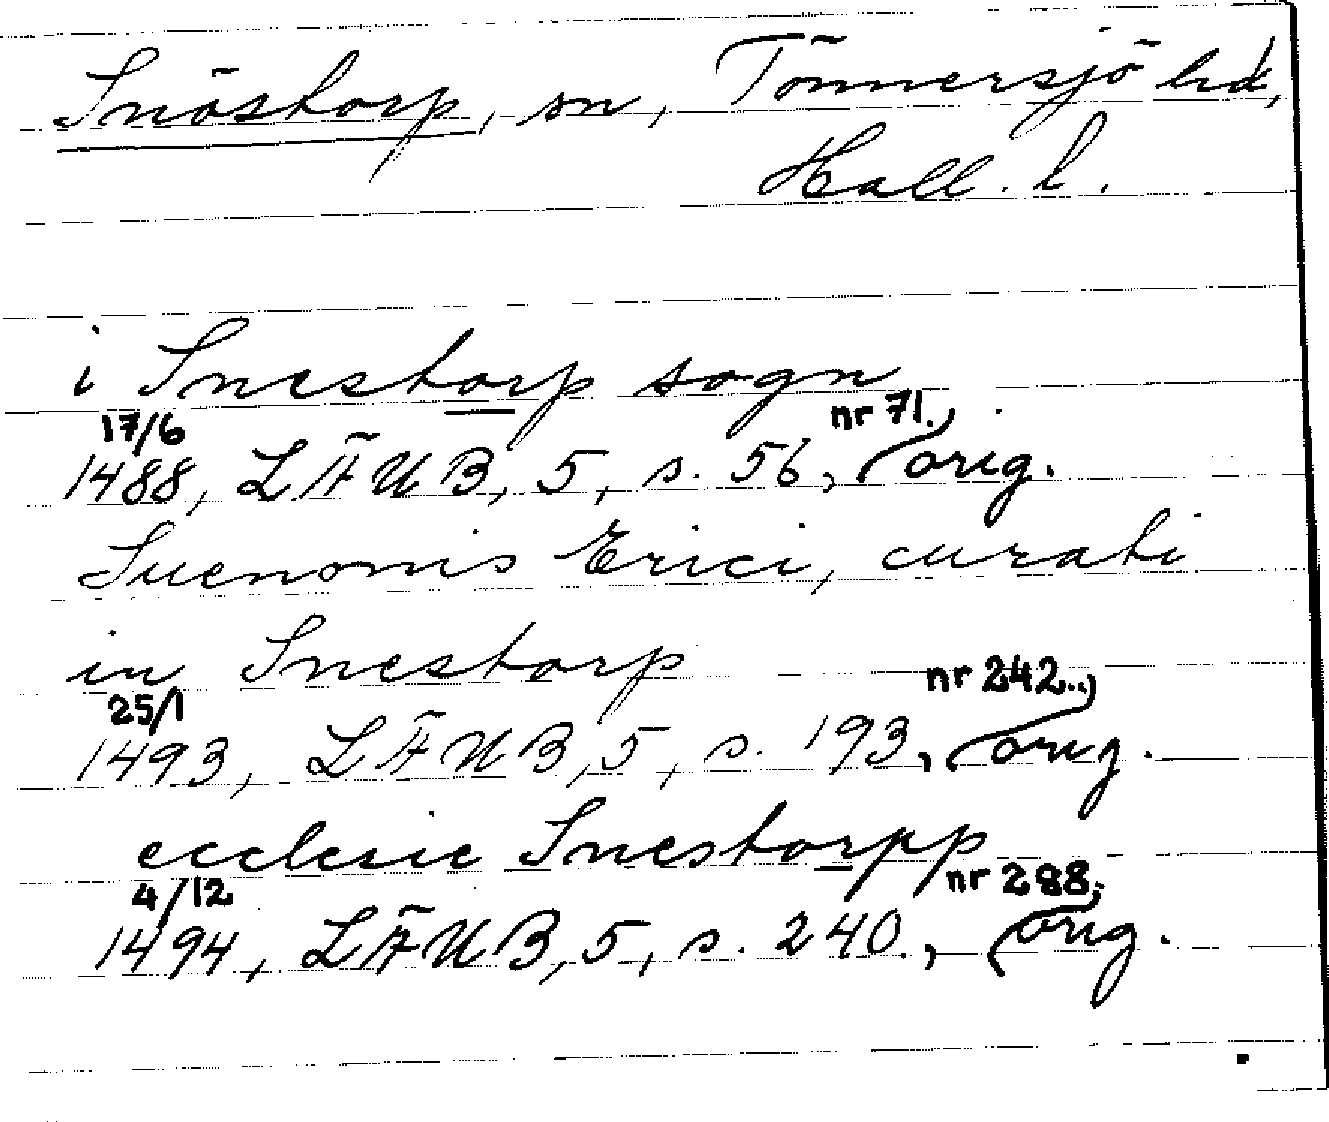 Snöstorp, sn, Tönnersjö hd,
Hall. l.
i Snestorp sogn
17/6 nr 71.
1488, LÄUB, 5, s. 56, orig.
Suenonis Erici, curati
in Snestorp
25/1 nr 242.
1493, LÄUB, 5, s. 193, orig.
ecclesie Snestorpp
4/12 nr 288.
1494, LÄUB, 5, s. 240., orig.